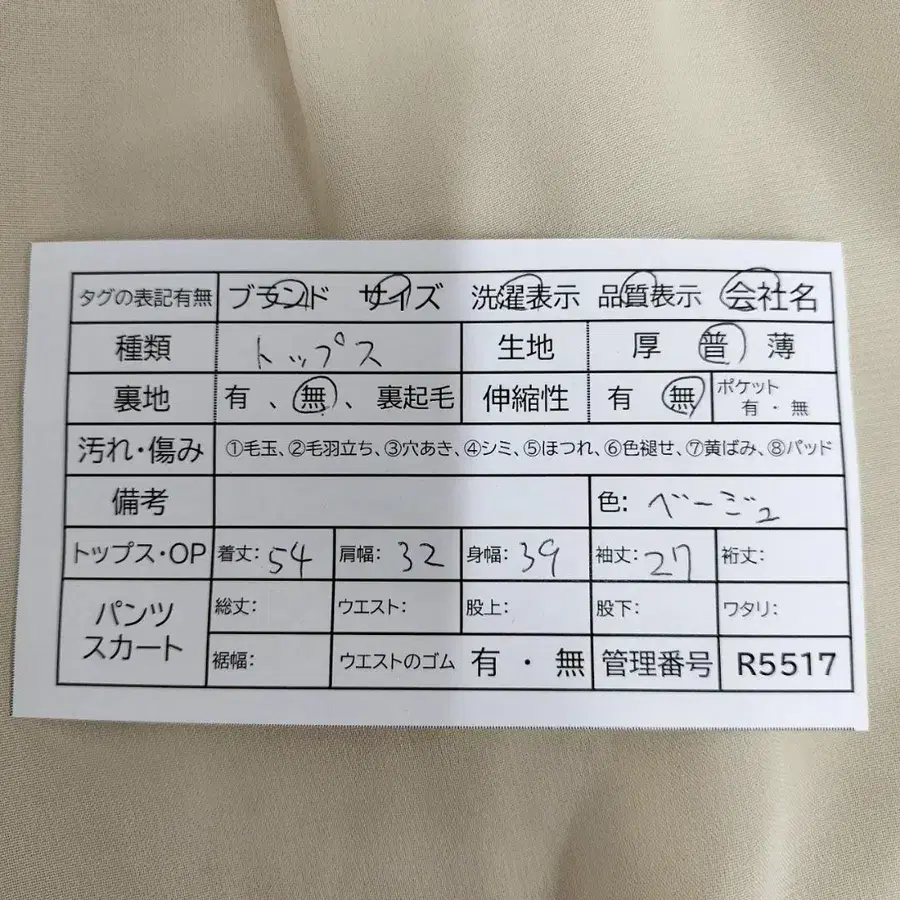 タグの表記有無 ブランド サイズ 洗濯表示 品質表示 会社名
種類 トップス 生地 厚 普 薄
裏地 有 、無、裏起毛 伸縮性 有 無 ポケット
有・無
汚れ・傷み ①毛玉、②毛羽立ち、③穴あき、④シミ、⑤ほつれ、⑥色褪せ、⑦黄ばみ、⑧パッド
備考 色: ベージュ
トップス・OP 着丈: 54 肩幅: 32 身幅: 39 袖丈: 27 裄丈:
パンツ
スカート
総丈: ウエスト: 股上: 股下: ワタリ:
裾幅: ウエストのゴム 有・無 管理番号 R5517